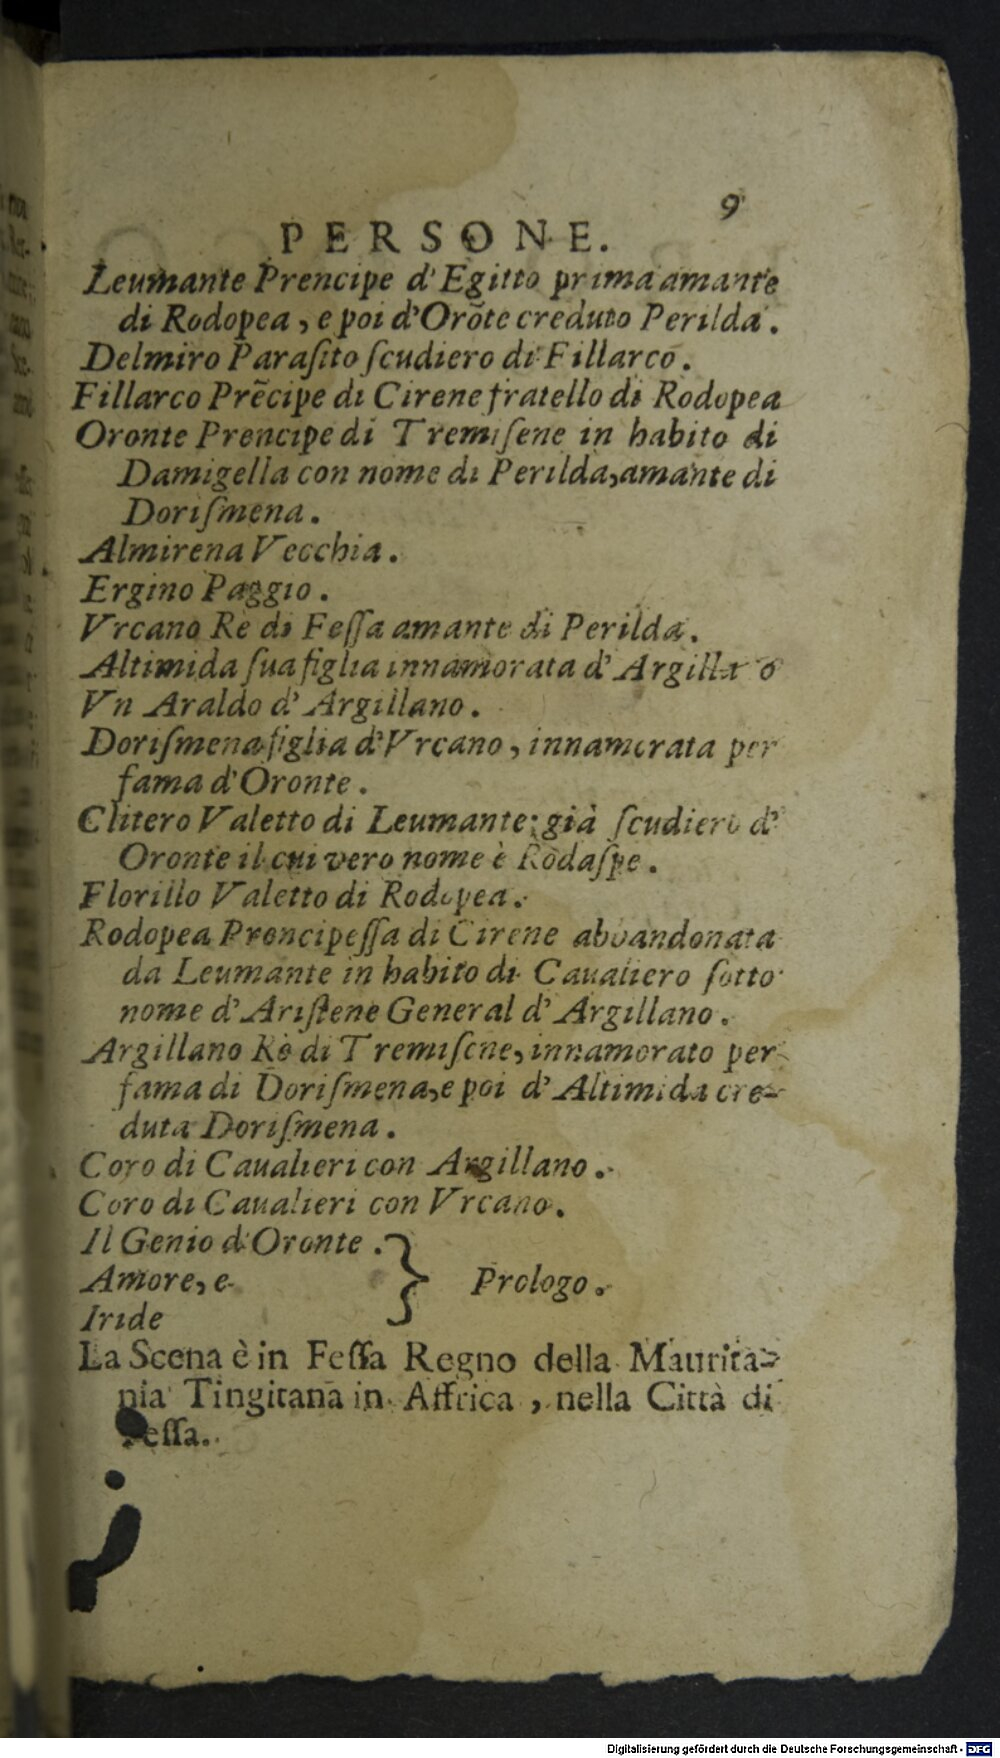 9
PERSONE.
Leumante Prencipe d'Egitto prima amante
di Rodopea, e poi d'Orõte creduto Perilda.
Delmiro Paraſito ſcudiero di Fillarco.
Fillarco Prẽcipe di Cirene fratello di Rodopea
Oronte Prencipe di Tremiſene in habito di
Damigella con nome di Perilda, amante di
Doriſmena.
Almirena Vecchia.
Ergino Paggio.
Vrcano Rè di Feſſa amante di Perilda.
Altimida ſua figlia innamorata d'Argillão
Vn Araldo d'Argillano.
Doriſmena figlia d'Vrcano, innamorata per
fama d'Oronte.
Clitero Valetto di Leumante; già ſcudiero d'
Oronte il cui vero nome è Rodaſpe.
Florillo Valetto di Rodopea.
Rodopea Prencipeſſa di Cirene abbandonata
da Leumante in habito di Caualiero ſotto
nome d'Ariſtene General d'Argillano.
Argillano Rè di Tremiſene, innamorato per
fama di Doriſmena, e poi d'Altimida cre-
duta Doriſmena.
Coro di Caualieri con Argillano.
Coro di Caualieri con Vrcano.
Il Genio d'Oronte.
Amore, e } Prologo.
Iride
La Scena è in Feſſa Regno della Maurita-
nia Tingitana in Affrica, nella Città di
Feſſa.
Digitalisierung gefördert durch die Deutsche Forschungsgemeinschaft - DFG